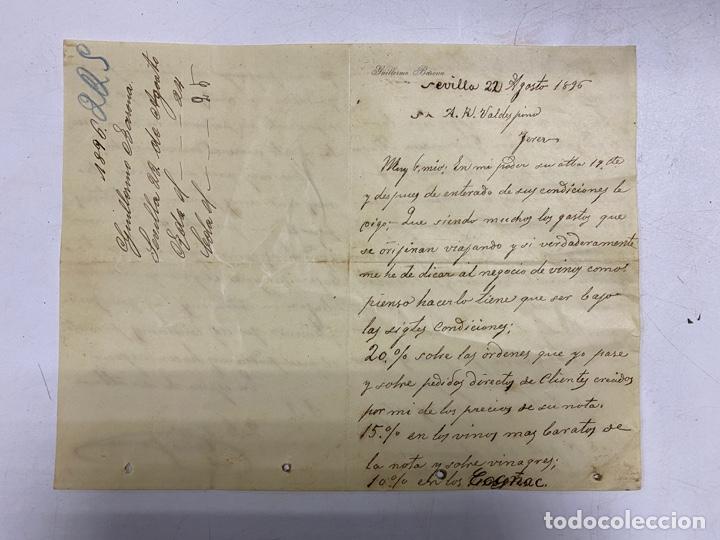 1896. 225
Guillermo Barona.
Sevilla 22 de Agosto
Rda al — — 24
Cda al — — 25
Guillermo Barona
Sevilla 22 Agosto 1896
Sr A. R. Valdespino
Jerez
Muy S. mio; En mi poder su atta 19. cte
y despues de enterado de sus condiciones le
digo:- Que siendo muchos los gastos que
se originan viajando y si verdaderamente
me he de dicar al negocio de vinos como
pienso hacerlo tiene que ser bajo
las sigtes condiciones;
20.% sobre las órdenes que yo pase
y sobre pedidos directos de Clientes creados
por mi de los precios de su nota.
15.% en los vinos mas baratos de
la nota y sobre vinagres;
10.% en los Cogñac.
todocoleccion.net